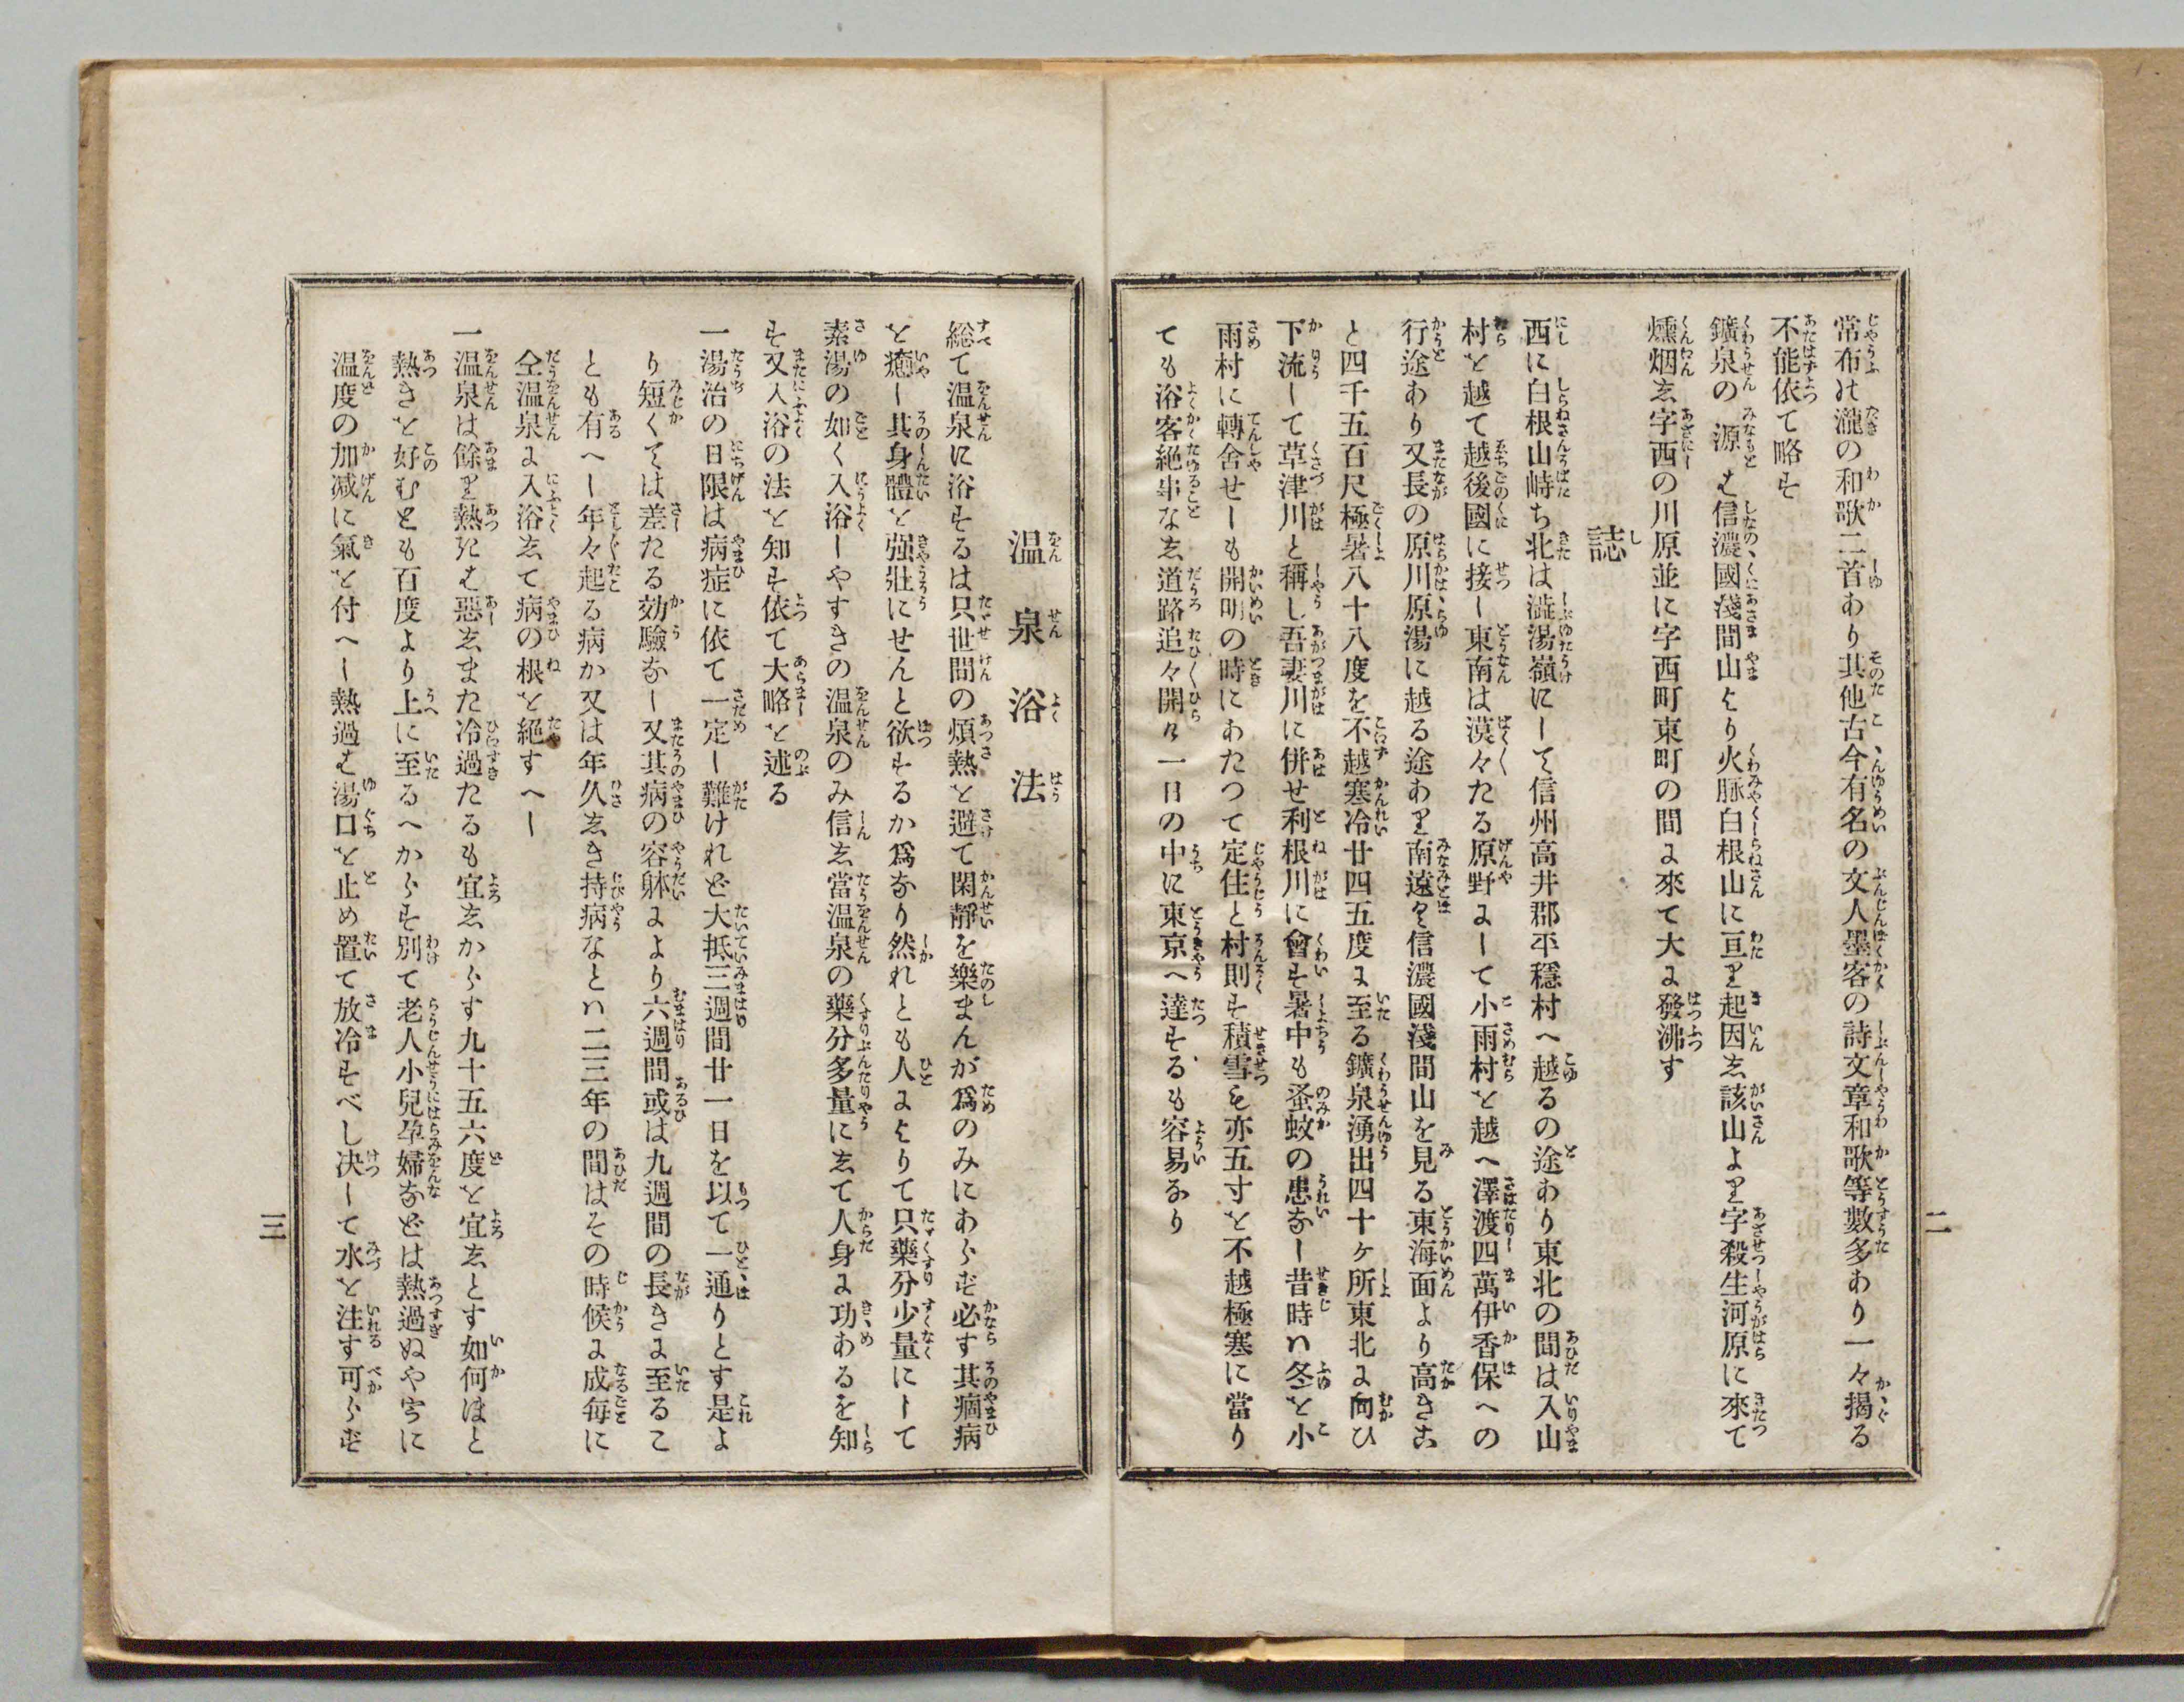 常布の瀧の和歌二首あり其他古今有名の文人墨客の詩文章和歌等數多あり一々揭る
不能依て略す
鑛泉の源は信濃國淺間山より火脉白根山に亘り起因し該山より字殺生河原に來て
燻烟し字西の川原並に字西町東町の間に來て大に發沸す
誌
西に白根山峙ち北は澁湯嶺にして信州高井郡平穩村へ越るの途あり東北の間は入山
村を越て越後國に接し東南は漠々たる原野にして小雨村を越へ澤渡四萬伊香保への
行途あり又長の原川原湯に越る途あり南遠く信濃國淺間山を見る東海面より高きこ
と四千五百尺極暑八十八度を不越寒冷廿四五度に至る鑛泉湧出四十ヶ所東北に向ひ
下流して草津川と稱し吾妻川に併せ利根川に會す暑中も蚤蚊の患なし昔時ハ冬を小
雨村に轉舍せしも開明の時にわたつて定住と村則す積雪も亦五寸を不越極寒に當り
ても浴客絶事なし道路追々開け一日の中に東京へ達するゝも容易なり
二
温泉浴法
総て温泉に浴するは只世間の煩熱を避て閑靜を樂まんが爲のみにあらず必す其痼病
を癒し其身體を强壯にせんと欲するか爲なり然れとも人によりて只藥分少量にして
素湯の如く入浴しやすきの温泉のみ信し當温泉の藥分多量にして人身に功あるを知
す又入浴の法を知す依て大略を述る
一湯治の日限は病症に依て一定し難けれど大抵三週間廿一日を以て一通りとす是よ
り短くては差たる効驗なし又其病の容躰により六週間或は九週間の長きに至るこ
とも有へし年々起る病か又は年久しき持病なとハ二三年の間はその時候に成每に
仝温泉に入浴して病の根を絕すへし
一温泉は餘り熱きは惡しまた冷過たるも宜しからす九十五六度を宜しとす如何ほと
熱きを好むとも百度より上に至るへからす別て老人小兒孕婦などは熱過ぬやうに
温度の加減に氣を付へし熱過は湯口を止め置て放冷すべし決して水を注す可らず
三